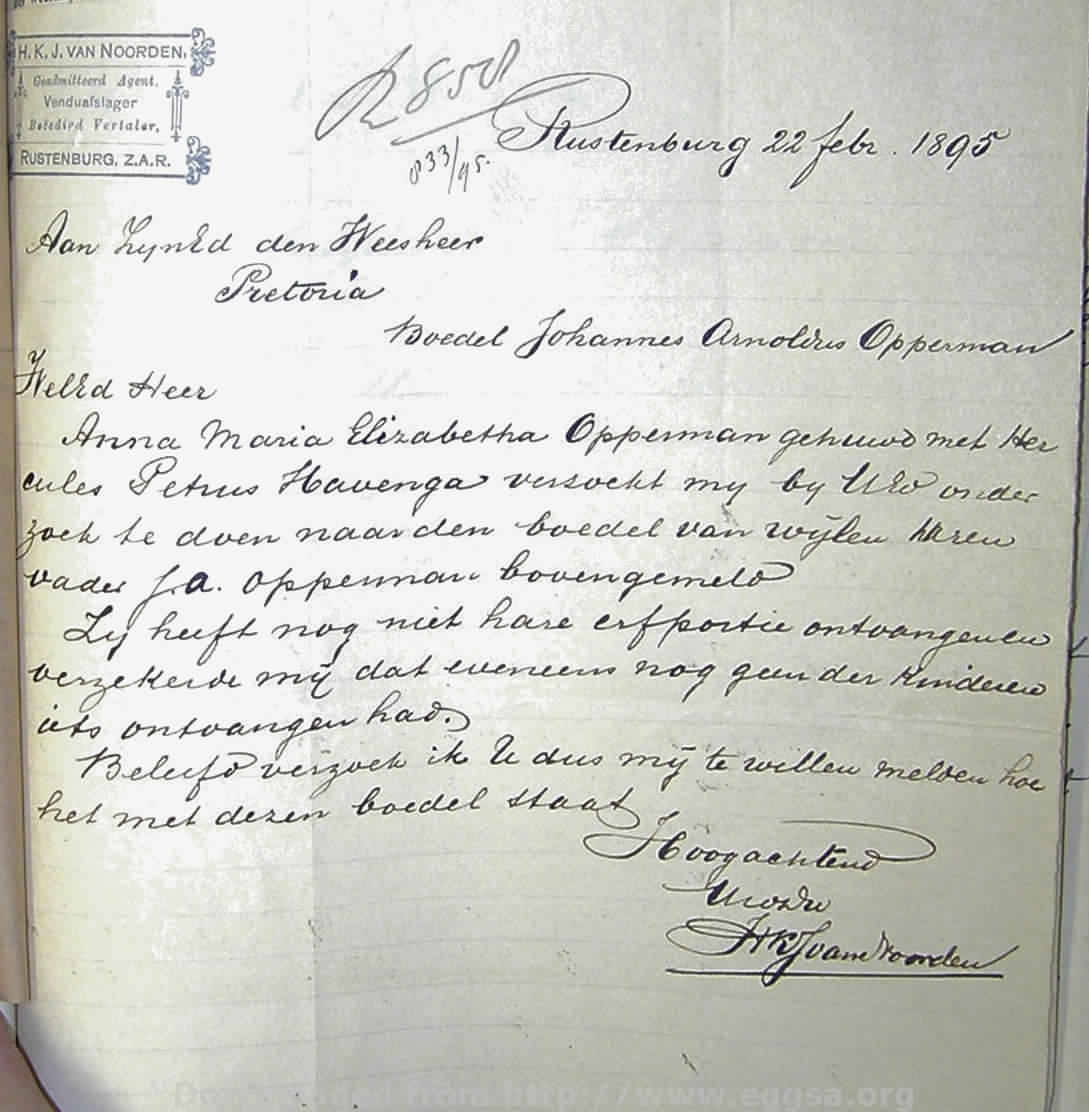 H. K. J. VAN NOORDEN,
Geadmitteerd Agent,
Venduafslager
Beëedigd Vertaler,
RUSTENBURG, Z.A.R.
R 858
833/95.
Rustenburg 22 febr. 1895
Aan ZynEd den Weesheer
Pretoria
Boedel Johannes Arnoldus Opperman
WelEd Heer
Anna Maria Elizabetha Opperman gehuwd met Her
cules Petrus Havenga verzocht my by UEd onder
zoek te doen naar den boedel van wijlen haren
vader J.A. Opperman bovengemeld
Zij heeft nog niet hare erfportie ontvangen en
verzekerde mij dat eveneens nog geen der kinderen
iets ontvangen had.
Beleefd verzoek ik U dus mij te willen melden hoe
het met dezen boedel staat
Hoogachtend
UwEdDw
HKJ van Noorden
Downloaded from http://www.eggsa.org